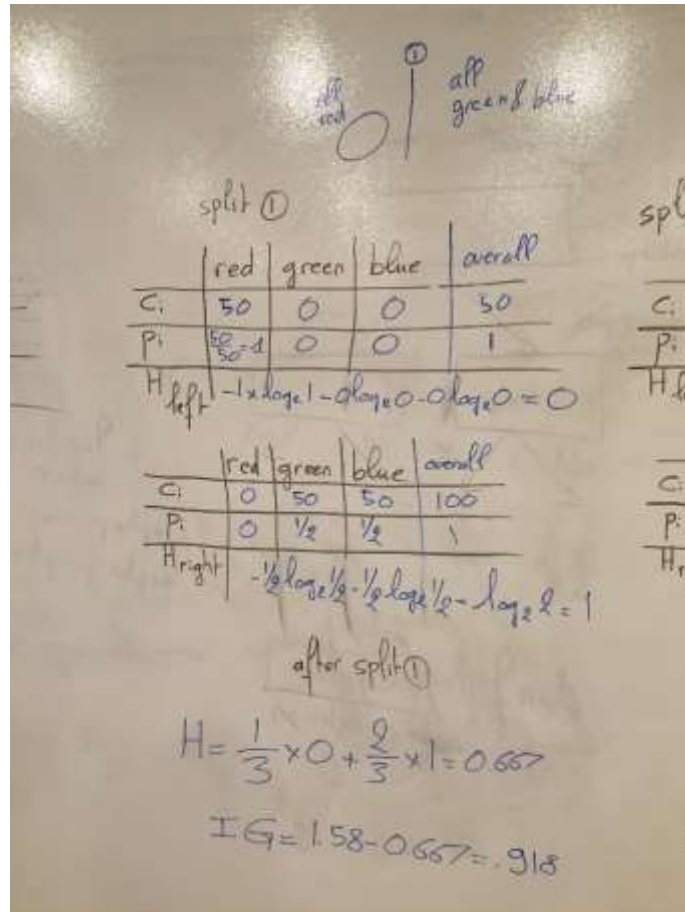 ①
all red
all
green & blue
split ①
red green blue overall
Ci 50 0 0 50
Pi 50/50=1 0 0 1
H left -1×log₂1-0log₂0-0log₂0=0
red green blue overall
Ci 0 50 50 100
Pi 0 1/2 1/2 1
Hright -1/2log₂1/2-1/2log₂1/2-log₂2=1
after split ①
H=1/3×0+2/3×1=0.667
IG=1.58-0.667=.918
spl
Ci
Pi
H l
Ci
Pi
Hr